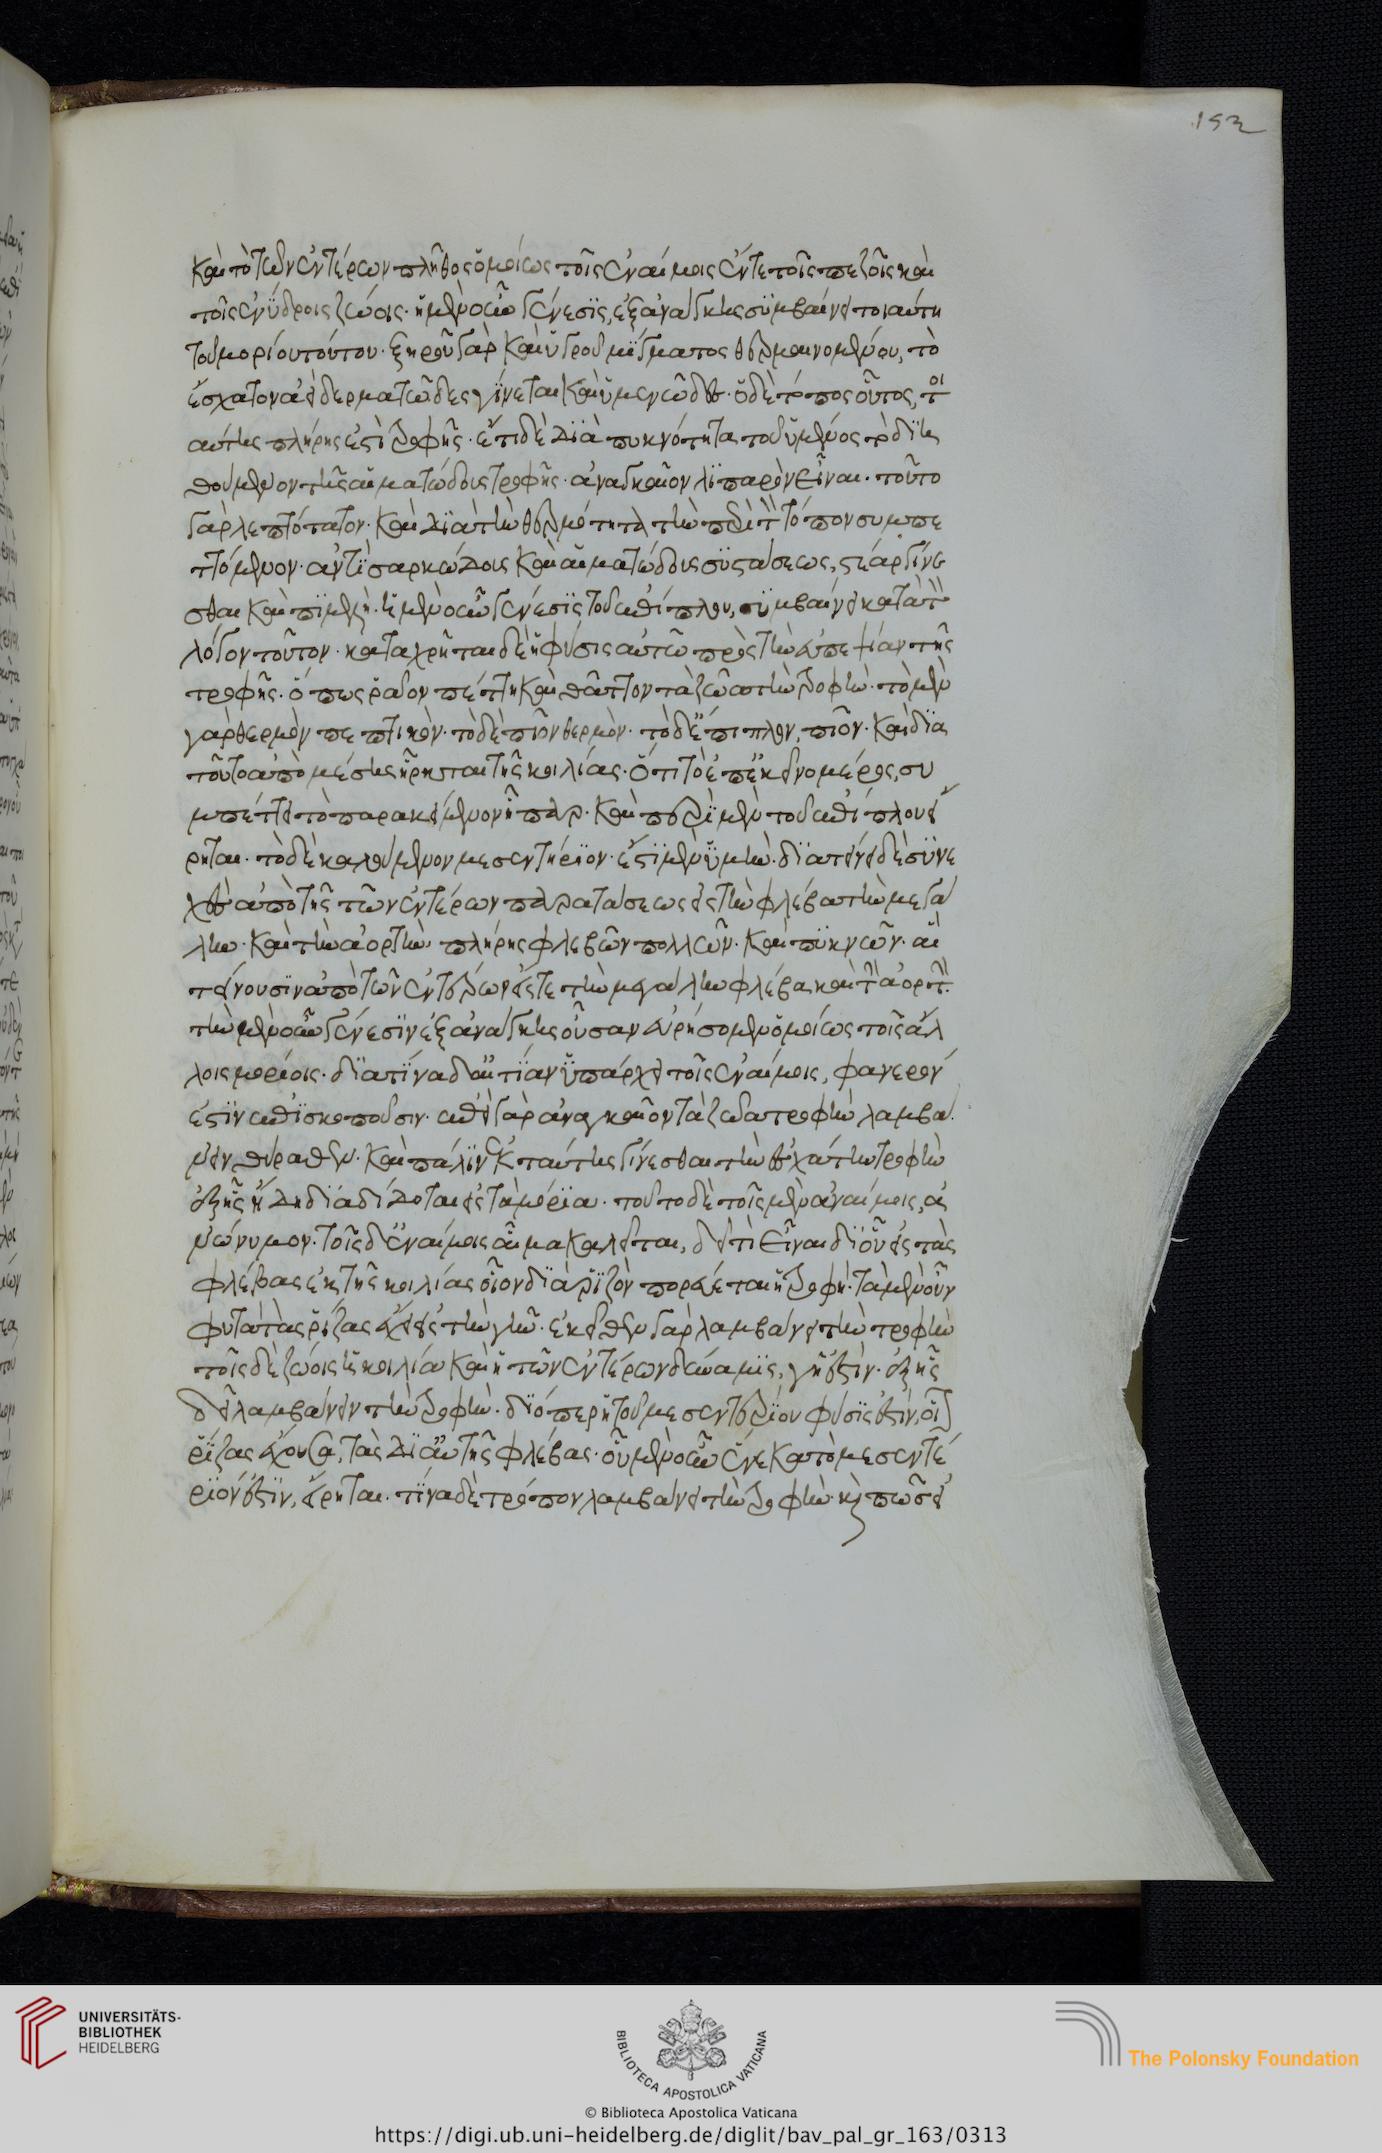 152
καὶ τὸ τῶν ἐντέρων πλῆθος ὁμοίως τοῖς ἐναίμοις ἔν τε τοῖς πεζοῖς καὶ
τοῖς ἐνύδροις ζώοις· ἡ μὲν οὖν γένεσις, ἐξ ἀνάγκης συμβαίνει τοιαύτη
τοῦ μορίου τούτου· ξηροῦ γὰρ καὶ ὑγροῦ μίγματος θερμαινομένου, τὸ
ἔσχατον ἀεὶ δερματῶδες γίνεται καὶ ὑμενῶδες· ὁ δὲ τόπος οὗτος, τοι
αύτης πλήρης ἐστὶ τροφῆς· ἔτι δὲ διὰ πυκνότητα τοῦ ὑμένος τὸ διη
θούμενον τῆς αἱματώδους τροφῆς· ἀναγκαῖον λιπαρὸν εἶναι· τοῦτο
γὰρ λεπτότατον· καὶ διὰ τὴν θερμότητα τὴν περὶ τὸν τόπον συμπε
πτόμενον· ἀντὶ σαρκώδους καὶ αἱματώδους συστάσεως, στέαρ γίνε
σθαι καὶ πιμελή· ἡ μὲν οὖν γένεσις τοῦ ἐπιπλου, συμβαίνει κατὰ τὸν
λόγον τοῦτον· καταχρῆται δὲ ἡ φύσις αὐτῶ πρὸς τὴν εὐπεψίαν τῆς
τροφῆς· ὅπως ῥᾶδον πέττη καὶ θᾶττον τὰ ζῶα τὴν τροφὴν· τὸ μὲν
γὰρ θερμὸν πεπτικὸν· τὸ δὲ πῖον θερμὸν· τὸ δὲ ἐπίπλουν, πῖον· καὶ διὰ
τοῦτο ἀπὸ μέσης ἤρτηται τῆς κοιλίας· ὅτι τὸ ἐπέκεινα μέρος, συ
μπέττει τὸ παρακείμενον ἧπαρ· καὶ περὶ μὲν τοῦ ἐπίπλου εἴ
ρηται· τὸ δὲ καλούμενον μεσεντέριον· ἔστι μὲν ὑμὴν· διατείνει δὲ συνε
χὲς ἀπὸ τῆς τῶν ἐντέρων παρατάσεως εἰς τὴν φλέβα τὴν μεγά
λην· καὶ τὴν ἀορτὴν· πλήρης φλεβῶν πολλῶν· καὶ πυκνῶν· αἳ
τείνουσιν ἀπὸ τῶν ἐντέρων εἴς τε τὴν μεγάλην φλέβα καὶ τὴν ἀορτήν·
τὴν μὲν οὖν γένεσιν ἐξ ἀνάγκης οὖσαν εὑρήσομεν ὁμοίως τοῖς ἄλ
λοις μορίοις· διὰ τίνα δ' αἰτίαν ὑπάρχει τοῖς ἐναίμοις, φανερόν
ἐστιν ἐπισκοποῦσιν· ἐπεὶ γὰρ ἀναγκαῖον τὰ ζῶα τροφὴν λαμβά
νειν θύραθεν· καὶ πάλιν ἐκ ταύτης γίνεσθαι τὴν ἐσχάτην τροφὴν
ἐξ ἧς ἤδη διαδίδοται εἰς τὰ μόρια· τοῦτο δὲ τοῖς μὲν ἀναίμοις, ἀ
νώνυμον· τοῖς δ' ἐναίμοις αἷμα καλεῖται, δεῖ τι εἶναι δι' οὗ εἰς τὰς
φλέβας ἐκ τῆς κοιλίας οἷον διὰ ῥιζῶν πορεύεται ἡ τροφή· τὰ μὲν οὖν
φυτὰ τὰς ῥίζας ἔχει εἰς τὴν γῆν· ἐκεῖθεν γὰρ λαμβάνει τὴν τροφὴν
τοῖς δὲ ζώοις ἡ κοιλία καὶ ἡ τῶν ἐντέρων δύναμις, γῆ ἐστὶν· ἐξ ἧς
δεῖ λαμβάνειν τὴν τροφὴν· διόπερ ἡ τοῦ μεσεντερίου φύσις ἐστὶν, οἷον
ῥίζας ἔχουσα, τὰς δι' αὐτῆς φλέβας· οὗ μὲν οὖν ἕνεκα τὸ μεσεντέ
ριόν ἐστιν, εἴρηται· τίνα δὲ τρόπον λαμβάνει τὴν τροφὴν· καὶ πῶς εἰ
UNIVERSITÄTS-
BIBLIOTHEK
HEIDELBERG
BIBLIOTECA APOSTOLICA VATICANA
The Polonsky Foundation
© Biblioteca Apostolica Vaticana
https://digi.ub.uni-heidelberg.de/diglit/bav_pal_gr_163/0313